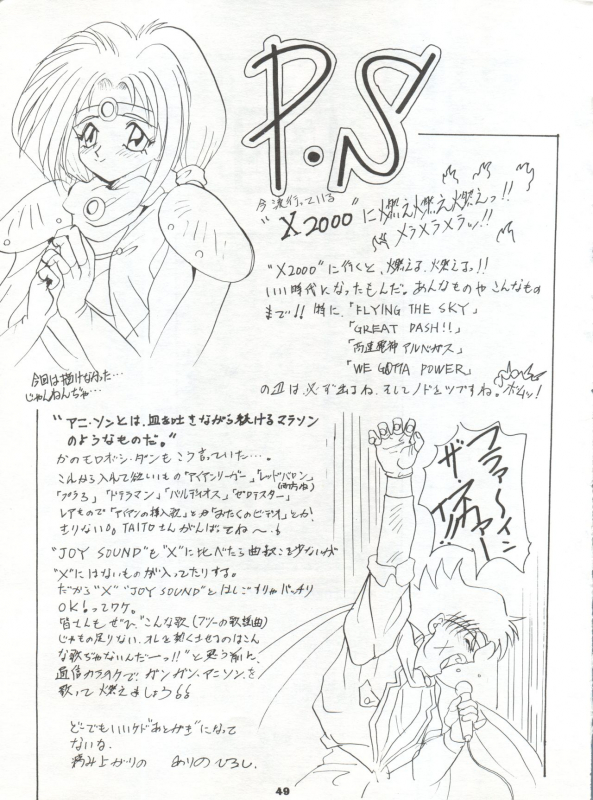 P.S
今流行っている
"X2000"に燃え燃え燃えっ!!
メラメラメラッ!!
"X2000"に行くと、燃えよ、燃えよっ!!
いい時代になったもんだ。あんなものやこんなもの
まで!! 特に、「FLYING THE SKY」
「GREAT DASH!!」
「高速魔神アルベガス」
「WE GOTTA POWER」
の皿は、必ず出るね、そしてノドとツブすね。
今回は描けなかった…
じゃんねんぢゃ…
"アニ・ソンとは、血を吐きながら続けるマラソン
のようなものだ。"
かのモロボシ・ダンもこう言っていた…。
こんから入んて欲いもの「アイアンリーガー」「レッドバロン」
(両方ね)
「ドテラマン」「バルディオス」「ゼロテスター」
レアもので「アイアンの挿入歌」とか「みたくのビデオ」とか!
きりないの。TAITOさんがんばってね〜
"JOY SOUND"も"X"に比べたら曲数こそ少ないが
"X"にはないものが入ってたりする。
だから"X""JOY SOUND"とはしごすりゃバッチリ
OK!ってワケ。
皆さんもぜひ、"こんな歌(フツーの歌謡曲)
じゃもの足りない、オレを熱くさせてのはこん
な歌ぢゃないんだーっ!!"と思う前に、
通信カラオケで、ガンガン、アニソンを
歌って燃えましょう
どーでもいいケド"あとがき"になって
ないな.
病み上がりの ありのひろし.
ファイヤー
ザ
49